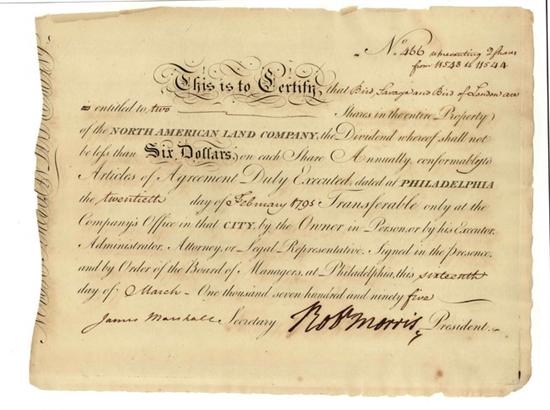 No 466 representing 2 Shares
from 11543 to 11544
This is to Certify, that Bird, Savage and Bird of London are
entitled to two Shares in the entire Property
of the NORTH AMERICAN LAND COMPANY, the Dividend whereof shall not
be less than Six Dollars, on each Share Annually, conformably to
Articles of Agreement Duly Executed, dated at PHILADELPHIA
the twentieth day of February 1795 Transferable only at the
Company's Office in that CITY, by the Owner in Person, or by his Executor,
Administrator, Attorney, or Legal Representative. Signed in the Presence,
and by Order of the Board of Managers, at Philadelphia, this sixteenth
day of March One thousand seven hundred and ninety five
James Marshall Secretary Rob Morris, President.